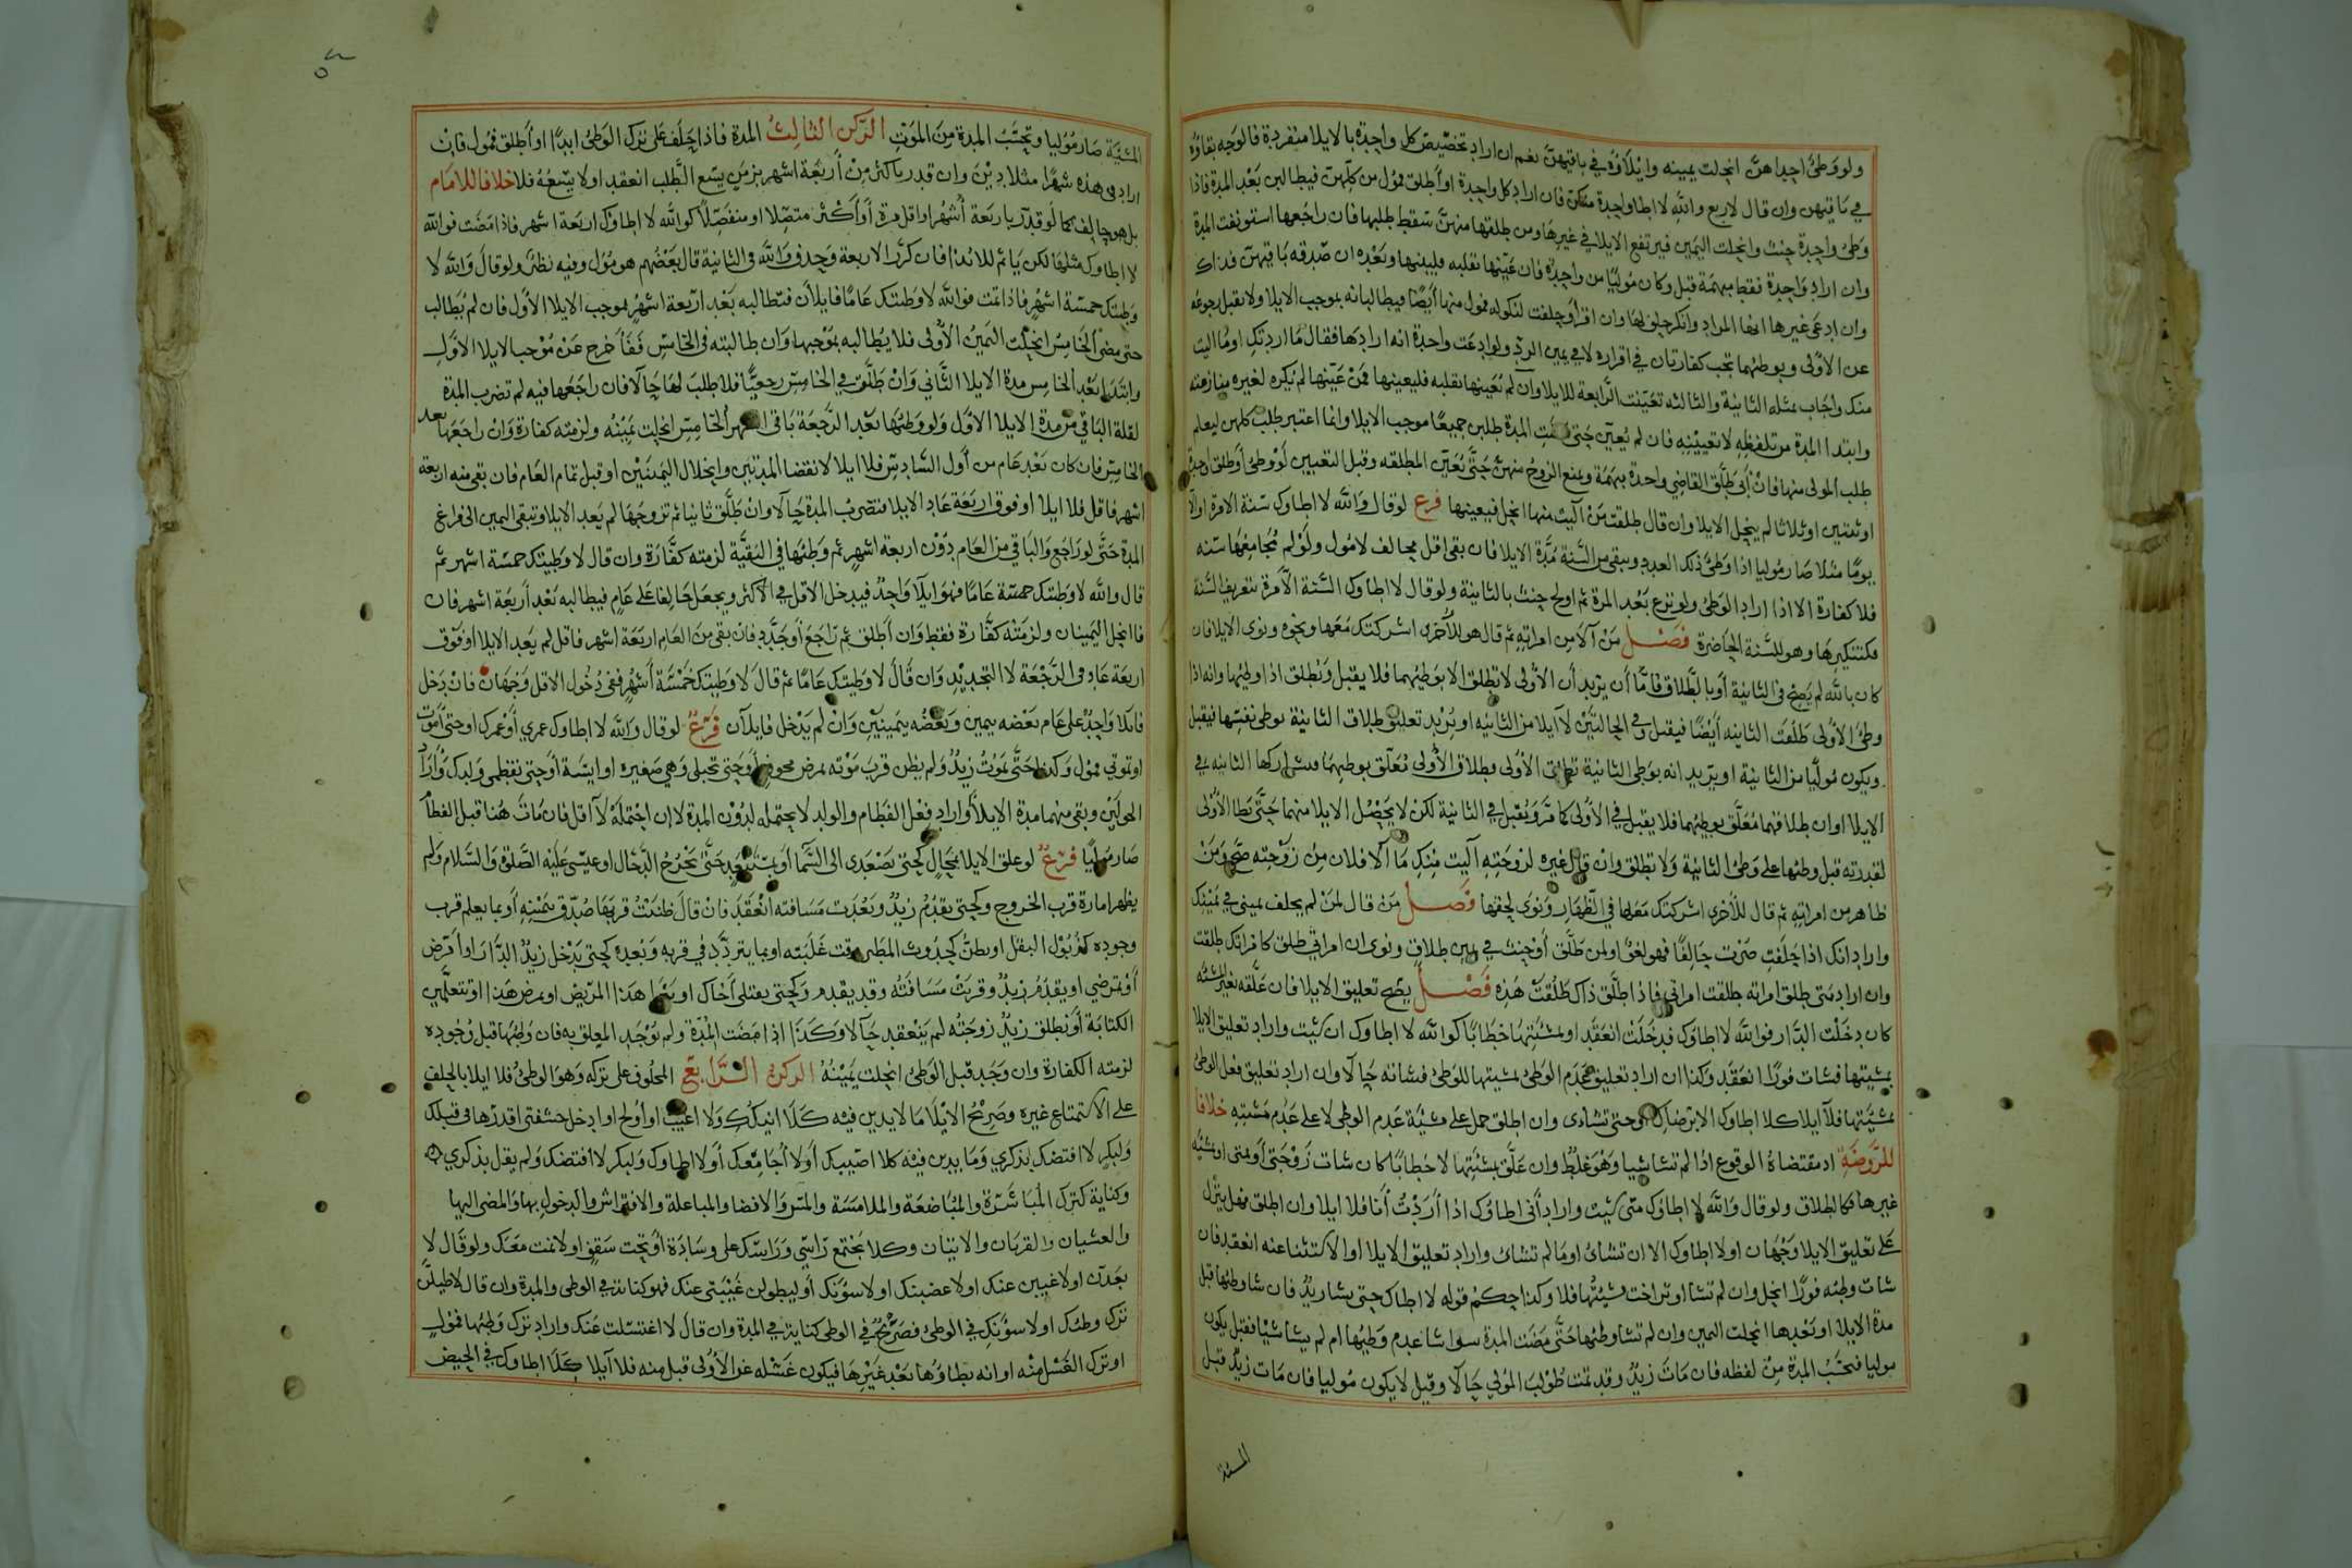 ولو وطئ احداهن انحلت يمينه وايلاؤه في باقيهن نعم ان اراد تخصيص كل واحدة بالايلا منفردة فالوجه بقاؤه
في باقيهن وان قال لاربع والله لا اطا واحدة منكن فان اراد كل واحدة او اطلق فمول من كلهن فيطالبن بعد المدة فاذا
وطئ واحدة حنث وانحلت اليمين فيرتفع الايلا في غيرها ومن طلقها منهن سقط طلبها فان راجعها استونفت المدة
وان اراد واحدة فقط مبهمة قبل وكان موليا من واحدة فان عينها بقلبه فليبينها وبعده ان صدقه باقيهن فذاك
وان ادعى غيرها انها المراد وانكر حلف لها وان اقر او حلفت لنكوله فمول منها ايضا فيطالبانه بموجب الايلا ولا يقبل رجوعه
عن الاولى وبوطئهما تجب كفارتان في اقراره لا في يمين الرد ولو ادعت واحدة انه ارادها فقال ما اردتك او ما اليت
منك واجاب بمثله الثانية والثالثة تعينت الرابعة للايلا وان لم يعينها بقلبه فليعينها فمن عينها لم يكن لغيره منازعته
وابتدا المدة من تلفظه لا تعيينه فان لم يعين حتى مضت المدة طلبن جميعا موجب الايلا وانما اعتبر طلب كلهن ليعلم
طلب المولى منها فان ابى طلق القاضي واحدة مبهمة ومنع الزوج منهن حتى تعين المطلقة وقبل التعيين لو وطئ او طلق واحدة
او ثنتين او ثلاثا لم ينحل الايلا وان قال طلقت من آليت منها انحل فيعينها فرع لو قال والله لا اطاوك سنة الا مرة او الا
يوما مثلا صار موليا اذا وطئ ذلك العدد وبقي من السنة مدة الايلا فان بقي اقل فحالف لا مول ولو لم يجامعها سنه
فلا كفارة الا اذا اراد الوطئ ولو نزع بعد المرة ثم اولج حنث بالثانية ولو قال لا اطاوك السنة الا مرة بتعريف السنة
فكتنكيرها وهو للسنة الحاضرة فصل من آلا من امراته ثم قال هو للاخرى اشركتك معها ونحوه ونوى الايلا فان
كان بالله لم يصح في الثانية او بالطلاق فاما أن يريد أن الاولى لا تطلق الا بوطئهما فلا يقبل وتطلق اذا وطئها وانه اذا
وطئ الاولى طلقت الثانيه أيضا فيقبل وفي الحالتين لا آيلا من الثانيه او يريد تعليق طلاق الثانية بوطئ نفسها فيقبل
ويكون موليا من الثانية او يريد انه بوطئ الثانية تطلق الاولى فطلاق الاولى معلق بوطئهما
الايلا او ان طلاقهما معلق بوطئهما فلا يقبل في الاولى كما مر ويقبل في الثانية لكن لا يحصل الايلا منهما حتى يطا الاولى
لقدرته قبل وطئها على وطئ الثانية ولا تطلق وان قال غيره لزوجته آليت منك ما آلا فلان من زوجته صح ومن
ظاهر من امراته ثم قال للاخرى اشركتك معها في الظهار ونوى لحقها فصل من قال لمن لم يحلف يميني في يمينك
واراد انك اذا حلفت صرت حالفا فهو لغو او لمن طلق أو حنث في يمين طلاق ونوى ان امراتي طلق كامراتك طلقت
وان اراد متى طلق امراته طلقت امراتي فاذا طلق ذاك طلقت هذه فصل يصح تعليق الايلا فان علقه بغير المشيئة
كان دخلت الدار فوالله لا اطاوك فدخلت انعقد او بمشيئتها خطابا كوالله لا اطاوك ان شيت واراد تعليق الايلا
بمشيتها فشات فورا انعقد وكذا ان اراد تعليق عدم الوطئ بمشيتها للوطئ فشاته حالا وان اراد تعليق فعل الوطئ
بمشيتها فلا آيلا كلا اطاوك الا برضاك او حتى تشاءى وان اطلق حمل على مشيئة عدم الوطى لا على عدم مشيته خلافا
للروضة اذ مقتضاه الوقوع اذا لم تشا شيا وهو غلط وان علق بمشيئتها لا خطابا كان شات زوجتى أو متى او مشيئة
غيرها فكالطلاق ولو قال والله لا اطاوك متى شيت واراد أني اطاوك اذا أردت أنا فلا ايلا وان اطلق فهل ينزل
على تعليق الايلا وجهان او لا اطاوك الا ان تشائ او ما لم تشائ واراد تعليق الايلا او الاستثنا عنه انعقد فان
شات وطئه فورا انحل وان لم تشا او تراخت مشيئتها فلا وكذا حكم قوله لا اطاك حتى يشا زيد فان شا وطئها قبل
مدة الايلا او بعدها انحلت اليمين وان لم تشا وطئها حتى مضت المدة سوا شا عدم وطئها ام لم يشا شيا فقيل يكون
موليا فتحسب المدة من لفظه فان مات زيد وقد تمت طولب المولي حالا وقيل لا يكون موليا فان مات زيد قبل
المشيئة
المشيئة صار موليا وتحتسب المدة من الموت الركن الثالث المدة فاذا حلف على ترك الوطئ ابدا او أطلق فمول فان
اراد في هذه شهرا مثلا دين وان قدر باكثر من أربعة اشهر بزمن يسع الطلب انعقد او لا يسعه فلا خلافا للامام
بل هو حالف كما لو قدر باربعة أشهر او اقل مرة أو أكثر متصلا او منفصلا كوالله لا اطاوك اربعة اشهر فاذا مضت فوالله
لا اطاوك مثلها لكن ياثم للائذا فان كرر الاربعة وحذف والله في الثانية قال بعضهم هو مول وفيه نظر ولو قال والله لا
وطئتك خمسة اشهر فاذا تمت فوالله لا وطئتك عاما فايلاآن فتطالبه بعد اربعة اشهر بموجب الايلا الاول فان لم يطالب
حتى مضى الخامس انحلت اليمين الاولى فلا يطالبه بموجبها وان طالبته في الخامس ففاء خرج عن موجب الايلا الاول
وابتدا بعد الخامس مدة الايلا الثاني وان طلق في الخامس رجعيا فلا طلب لها حالا فان راجعها فيه لم تضرب المدة
لقلة الباقي من مدة الايلا الاول ولو وطئها بعد الرجعة باقى الشهر الخامس انحلت يمينه ولزمته كفارة وان راجعها بعد
الخامس فان كان بعد عام من أول السادس فلا ايلا لانقضا المدتين وانحلال اليمينين او قبل تمام العام فان بقى منه اربعة
اشهر فاقل فلا ايلا او فوق اربعة عاد الايلا فتضرب المدة حالا وان طلق ثانيا ثم تزوجها لم يعد الايلا وتبقى اليمين الى فراغ
المدة حتى لو راجع والباقي من العام دون اربعة اشهر ثم وطئها في البقية لزمته كفارة وان قال لا وطيتك خمسة اشهر ثم
قال والله لا وطئتك خمسة عاما فهو ايلا واحد فيدخل الاقل في الاكثر ويجعل حالفا على عام فيطالبه بعد أربعة اشهر فان
فا انحل اليمينان ولزمته كفارة فقط وان أطلق ثم راجع أو جدد فان بقى من العام اربعة اشهر فاقل لم يعد الايلا او فوق
اربعة عاد في الرجعة لا التجديد وان قال لا وطيتك عاما ثم قال لا وطيتك خمسة أشهر ففي دخول الاقل وجهان فان دخل
فايلا واحد على عام بعضه بيمين وبعضه بيمينين وان لم يدخل فايلاآن فرع لو قال والله لا اطاوك عمري أو عمرك او حتى أموت
او تموتي فمول وكذا حتى يموت زيد ولم يظن قرب موته بمرض مخوف أو حتى تحبلي وهي صغيره او ايسة أو حتى تفطمي ولدك واراد
الحولين وبقى منهما مدة الايلا أو اراد فعل الفطام والولد لا يحتمله لدون المدة لا ان احتمله لاقل فان مات هنا قبل الفطام
صار موليا فرع لو علق الايلا بمحال كحتى تصعدى الى السما أو بمستبعد حتى يخرج الدجال او عيسى عليه الصلوة والسلام ولم
يظهر امارة قرب الخروج وكحتى يقدم زيد وبعدت مسافته انعقد فان قال ظننت قربها صدق بيمينه أو بما يعلم قرب
وجوده كذبول البقل او يظن كحدوث المطر وقت غلبته او بما يتردد في قربه وبعده كحتى يدخل زيد الدار او أمرض
أو تمرضي او يقدم زيد وقربت مسافته وقد يقدم وكحتى يعتلى أخاك او هذا المريض او يمرض هذا او تتعلمين
الكتابة أو يطلق زيد زوجته لم ينعقد حالا وكذا اذا مضت المدة ولم توجد المعلق به فان وطئها قبل وجوده
لزمته الكفارة وان وجد قبل الوطئ انحلت يمينه الركن الرابع المحلوف على تركه وهو الوطئ فلا ايلا بالحلف
على الاستمتاع غيره وصريح الايلا ما لا يدين فيه كلا انيكك ولا اغيب او أولج او ادخل حشفتى او قدرها في قبلك
ولبكر لا افتضك بذكري وما يدين فيه كلا اصيبك أو لا أجامعك أو لا اطاوك ولبكر لا افتضك ولم يقل بذكري
وكناية كترك المباشرة والمباضعة والملامسة والمس والافضا والمباعلة والافتراش والدخول بها والمضى اليها
والغشيان والقربان والاتيان وكلا يجتمع راسي وراسك على وسادة أو تحت سقف او لا نمت معك ولو قال لا
بعدت او لا غيبن عنك او لا غضبتك او لا سؤنك أو ليطولن غيبتى عنك فهو كناية في الوطى والمدة وان قال لا طيلن
ترك وطئك او لا سؤنك في الوطئ فصريح في الوطى كناية في المدة وان قال لا اغتسلت عنك واراد ترك وطئها فمول
او ترك الغسل منه او انه يطاؤها بعد غيرها فيكون غسله عن الاولى قبل منه فلا آيلا كلا اطاوك في الحيض